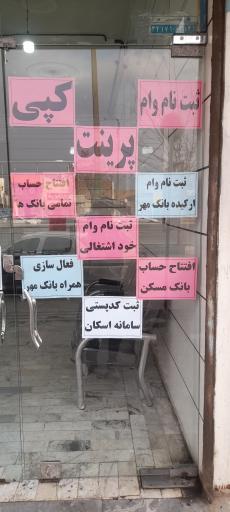 ثبت نام وام
کپی
پرینت
ثبت نام وام
ارکیده بانک مهر
افتتاح حساب
تمامی بانک ها
ثبت نام وام
خود اشتغالی
افتتاح حساب
بانک مسکن
فعال سازی
همراه بانک مهر
ثبت کدپستی
سامانه اسکان